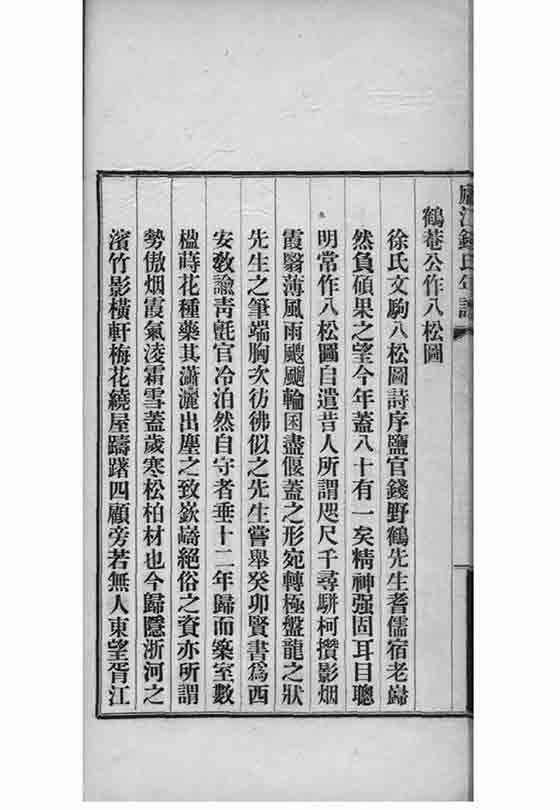 廬江錢氏年譜
鶴菴公作八松圖
徐氏文駒八松圖詩序鹽官錢野鶴先生耆儒宿老歸
然負碩果之望今年蓋八十有一矣精神强固耳目聰
明常作八松圖自遣昔人所謂咫尺千尋駢柯攢影烟
霞翳薄風雨颼飅輪囷盡偃蓋之形宛轉極盤龍之狀
先生之筆端胸次彷彿似之先生嘗舉癸卯賢書爲西
安敎諭靑氈官冷泊然自守者垂十二年歸而築室數
楹蒔花種藥其瀟灑出塵之致嶔﨑絕俗之資亦所謂
勢傲烟霞氣凌霜雪蓋歲寒松柏材也今歸隱浙河之
濱竹影橫軒梅花繞屋躊躇四顧旁若無人東望胥江